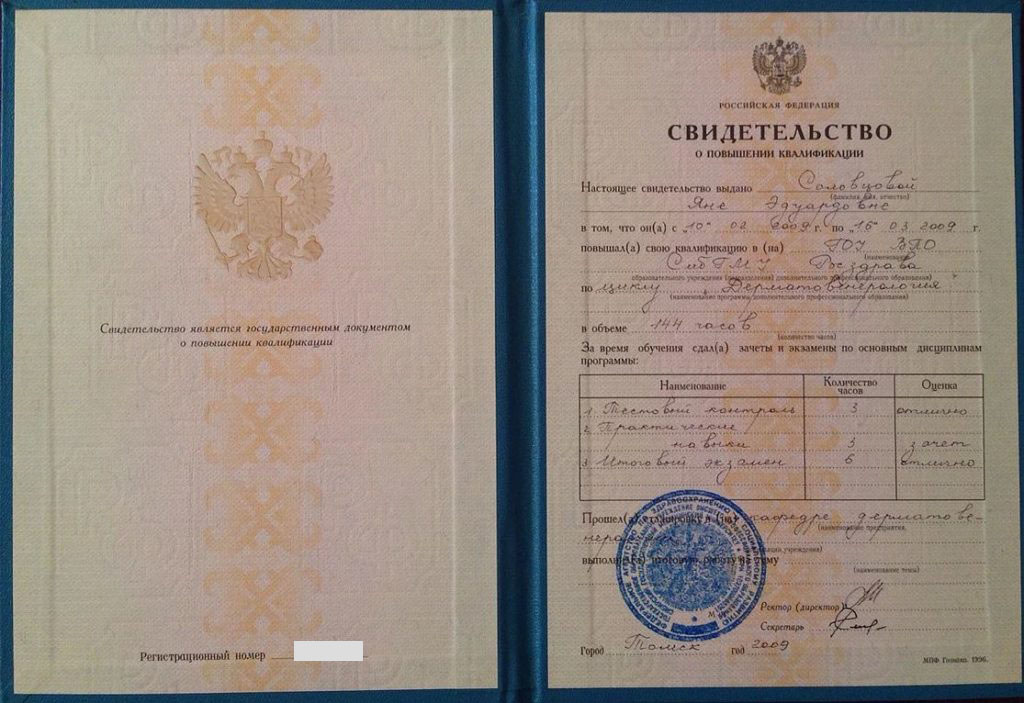 Свидетельство является государственным документом
о повышении квалификации
Регистрационный номер
РОССИЙСКАЯ ФЕДЕРАЦИЯ
СВИДЕТЕЛЬСТВО
О ПОВЫШЕНИИ КВАЛИФИКАЦИИ
Настоящее свидетельство выдано Соловцовой
(фамилия, имя, отчество)
Яне Эдуардовне
в том, что он(а) с „10" 02 2009 г. по „16 03 2009 г.
повышал(а) свою квалификацию в (на) ГОУ ВПО
(наименование)
СибГМУ Росздрава
образовательного учреждения (подразделения) дополнительного профессионального образования)
по циклу „Дерматовенерология"
(наименование программы дополнительного профессионального образования)
в объеме 144 часов
(количество часов)
За время обучения сдал(а) зачеты и экзамены по основным дисциплинам
программы:
Наименование Количество часов Оценка
1. Тестовый контроль 3 отлично
2. Практические
навыки 3 зачет
3. Итоговый экзамен 6 отлично
Прошел(а) стажировку в (на) кафедре дерматове-
(наименование предприятия,
нерологии
организации, учреждения)
выполнил(а) итоговую работу на тему
(наименование темы)
Ректор (директор)
Секретарь
Город Томск год 2009
МПФ Гознака. 1996.